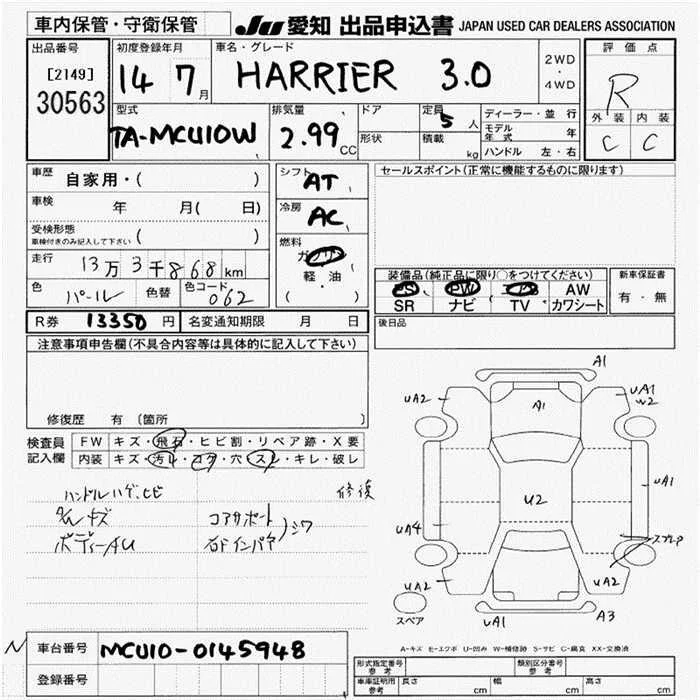 車内保管・守衛保管
JU 愛知 出品申込書 JAPAN USED CAR DEALERS ASSOCIATION
出品番号 初度登録年月 車名・グレード 評価点
[2149]
30563
14 7月 HARRIER 3.0
2WD
・
4WD
R
外装 内装
C C
型式 排気量 ドア 定員 5人 ディーラー・並行
TA-MCU10W 2.99 CC
形状 積載 kg
モデル年式 年
ハンドル 左・右
車歴 自家用・( )
シフト AT
セールスポイント(正常に機能するものに限ります)
車検 年 月( 日)
冷房 AC
受検形態 ( )
車検付きのみ記入して下さい
燃料
ガソリン
軽・油
( )
走行 13万3千868km
装備品(純正品に限り○をつけてください) 新車保証書
PS PW AW
SR ナビ TV カワシート
有・無
色 パール 色替 色コード 062
R券 13350円 名変通知期限 月 日
後日品
注意事項申告欄(不具合内容等は具体的に記入して下さい)
修復歴 有 〔箇所 〕
検査員
記入欄
FW キズ・飛石・ヒビ割・リペア跡・X要
内装 キズ・汚レ・コゲ・穴・スレ・キレ・破レ
ハンドルハゲ、ヒビ 修復
キズ コアサポート
シワ
ボディーAU 右Fインパネ
A1
UA2 A1 UA1
W2
UA1
U2
UA4
UA2 UA2
スペア UA1 A3
A-キズ E-エクボ U-凹み W-補修跡 S-サビ C-腐食 XX-交換済
N 車台番号 MCU10-0145948
登録番号
形式指定番号 参考 類別区分番号 参考
車庫証明用 参考 長さ cm 幅 cm 高さ cm